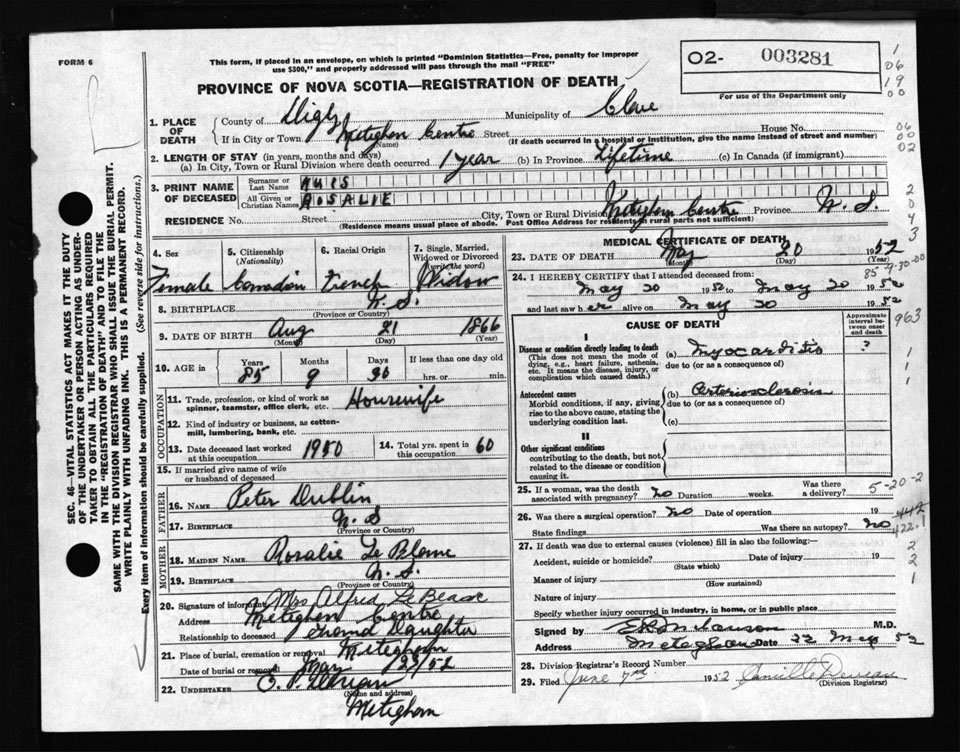 FORM 6
This form, if placed in an envelope, on which is printed "Dominion Statistics—Free, penalty for improper
use $300," and properly addressed will pass through the mail "FREE"
PROVINCE OF NOVA SCOTIA—REGISTRATION OF DEATH
O2- 003281
For use of the Department only
1 06 19 00
06 00 02
2 0 4 3
1. PLACE OF DEATH County of Digby Municipality of Clare
If in City or Town Meteghen Centre Street House No.
(Name) (If death occurred in a hospital or institution, give the name instead of street and number)
2. LENGTH OF STAY (in years, months and days)
(a) In City, Town or Rural Division where death occurred 1 year (b) In Province Lifetime (c) In Canada (if immigrant)
3. PRINT NAME OF DECEASED Surname or Last Name
All Given or Christian Names ROSALIE
RESIDENCE No. Street City, Town or Rural Division Meteghen Centre Province N. S.
(Residence means usual place of abode. Post Office Address for residents in rural parts not sufficient)
4. Sex
Female
5. Citizenship (Nationality)
Canadian
6. Racial Origin
French
7. Single, Married, Widowed or Divorced (write the word)
Widow
8. BIRTHPLACE N. S.
(Province or Country)
9. DATE OF BIRTH Aug 21 1866
(Month) (Day) (Year)
10. AGE in Years Months Days If less than one day old
85 9 30 hrs. or min.
OCCUPATION
11. Trade, profession, or kind of work as spinner, teamster, office clerk, etc. Housewife
12. Kind of industry or business, as cotton-mill, lumbering, bank, etc.
13. Date deceased last worked at this occupation 1950 14. Total yrs. spent in this occupation 60
15. If married give name of wife or husband of deceased
FATHER
16. NAME Peter Dublin
17. BIRTHPLACE N. S
(Province or Country)
MOTHER
18. MAIDEN NAME Rosalie Le Blanc
19. BIRTHPLACE N. S.
(Province or Country)
20. Signature of informant Mrs Alfred LeBlanc
Address Meteghen Centre
Relationship to deceased Daughter
21. Place of burial, cremation or removal Meteghen
Date of burial or removal /52
22. UNDERTAKER
(Name and address)
Meteghen
MEDICAL CERTIFICATE OF DEATH
23. DATE OF DEATH May 20 1952
(Month) (Day) (Year)
85-9-30-00
24. I HEREBY CERTIFY that I attended deceased from:
May 20 1952 to May 20 1952
and last saw her alive on May 20 1952
963
1 1 1
CAUSE OF DEATH
Approximate interval between onset and death
I
Disease or condition directly leading to death (a) Myocarditis ?
(This does not mean the mode of dying, e.g., heart failure, asthenia, etc. It means the disease, injury, or complication which caused death.)
due to (or as a consequence of)
Antecedent causes (b) Arteriosclerosis
Morbid conditions, if any, giving rise to the above cause, stating the underlying condition last.
due to (or as a consequence of)
(c)
II
Other significant conditions
contributing to the death, but not related to the disease or condition causing it.
25. If a woman, was the death associated with pregnancy? no Duration weeks. Was there a delivery?
5-20-2
26. Was there a surgical operation? No Date of operation 19
State findings Was there an autopsy? No
442 422.1
27. If death was due to external causes (violence) fill in also the following:—
Accident, suicide or homicide? Date of injury 19
(State which)
Manner of injury
(How sustained)
Nature of injury
Specify whether injury occurred in industry, in home, or in public place
2 2 1
Signed by M.D.
Address Meteghan Date 22 May 52
28. Division Registrar's Record Number
29. Filed June 7 1952 Camille
(Division Registrar)
SEC. 46—VITAL STATISTICS ACT MAKES IT THE DUTY
OF THE UNDERTAKER OR PERSON ACTING AS UNDER-
TAKER TO OBTAIN ALL THE PARTICULARS REQUIRED
IN THE "REGISTRATION OF DEATH" AND TO FILE THE
SAME WITH THE DIVISION REGISTRAR WHO SHALL ISSUE THE BURIAL PERMIT.
WRITE PLAINLY WITH UNFADING INK. THIS IS A PERMANENT RECORD.
Every item of information should be carefully supplied. (See reverse side for instructions.)